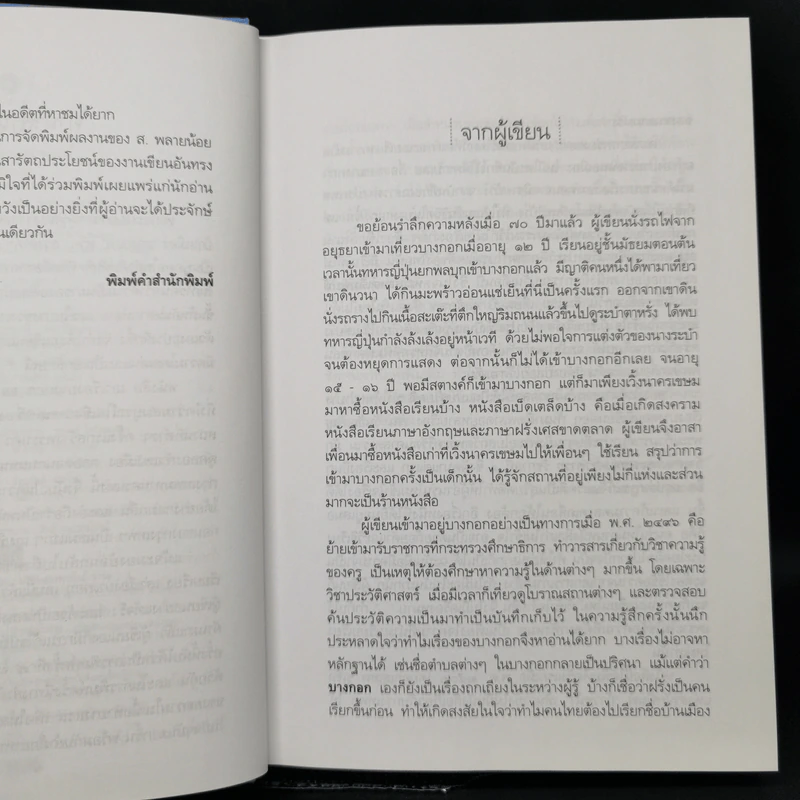 ในอดีตที่หาชมได้ยาก
การจัดพิมพ์ผลงานของ ส. พลายน้อย
สารัตถประโยชน์ของงานเขียนอันทรง
มิใจที่ได้ร่วมพิมพ์เผยแพร่แก่นักอ่าน
วังเป็นอย่างยิ่งที่ผู้อ่านจะได้ประจักษ์
นเดียวกัน
พิมพ์คำสำนักพิมพ์
จากผู้เขียน
ขอย้อนรำลึกความหลังเมื่อ ๗๐ ปีมาแล้ว ผู้เขียนนั่งรถไฟจาก
อยุธยาเข้ามาเที่ยวบางกอกเมื่ออายุ ๑๒ ปี เรียนอยู่ชั้นมัธยมตอนต้น
เวลานั้นทหารญี่ปุ่นยกพลบุกเข้าบางกอกแล้ว มีญาติคนหนึ่งได้พามาเที่ยว
เขาดินวนา ได้กินมะพร้าวอ่อนแช่เย็นที่นี่เป็นครั้งแรก ออกจากเขาดิน
นั่งรถรางไปกินเนื้อสะเต๊ะที่ตึกใหญ่ริมถนนแล้วขึ้นไปดูระบำตาหรั่ง ได้พบ
ทหารญี่ปุ่นกำลังล้งเล้งอยู่หน้าเวที ด้วยไม่พอใจการแต่งตัวของนางระบำ
จนต้องหยุดการแสดง ต่อจากนั้นก็ไม่ได้เข้าบางกอกอีกเลย จนอายุ
๑๕ - ๑๖ ปี พอมีสตางค์ก็เข้ามาบางกอก แต่ก็มาเพียงเวิ้งนาครเขษม
มาหาซื้อหนังสือเรียนบ้าง หนังสือเบ็ดเตล็ดบ้าง คือเมื่อเกิดสงคราม
หนังสือเรียนภาษาอังกฤษและภาษาฝรั่งเศสขาดตลาด ผู้เขียนจึงอาสา
เพื่อนมาซื้อหนังสือเก่าที่เวิ้งนาครเขษมไปให้เพื่อนๆ ใช้เรียน สรุปว่าการ
เข้ามาบางกอกครั้งเป็นเด็กนั้น ได้รู้จักสถานที่อยู่เพียงไม่กี่แห่งและส่วน
มากจะเป็นร้านหนังสือ
ผู้เขียนเข้ามาอยู่บางกอกอย่างเป็นทางการเมื่อ พ.ศ. ๒๔๙๖ คือ
ย้ายเข้ามารับราชการที่กระทรวงศึกษาธิการ ทำวารสารเกี่ยวกับวิชาความรู้
ของครู เป็นเหตุให้ต้องศึกษาหาความรู้ในด้านต่างๆ มากขึ้น โดยเฉพาะ
วิชาประวัติศาสตร์ เมื่อมีเวลาก็เที่ยวดูโบราณสถานต่างๆ และตรวจสอบ
ค้นประวัติความเป็นมาทำเป็นบันทึกเก็บไว้ ในความรู้สึกครั้งนั้นนึก
ประหลาดใจว่าทำไมเรื่องของบางกอกจึงหาอ่านได้ยาก บางเรื่องไม่อาจหา
หลักฐานได้ เช่นชื่อตำบลต่างๆ ในบางกอกกลายเป็นปริศนา แม้แต่คำว่า
บางกอก เองก็ยังเป็นเรื่องถกเถียงในระหว่างผู้รู้ บ้างก็เชื่อว่าฝรั่งเป็นคน
เรียกขึ้นก่อน ทำให้เกิดสงสัยในใจว่าทำไมคนไทยต้องไปเรียกชื่อบ้านเมือง